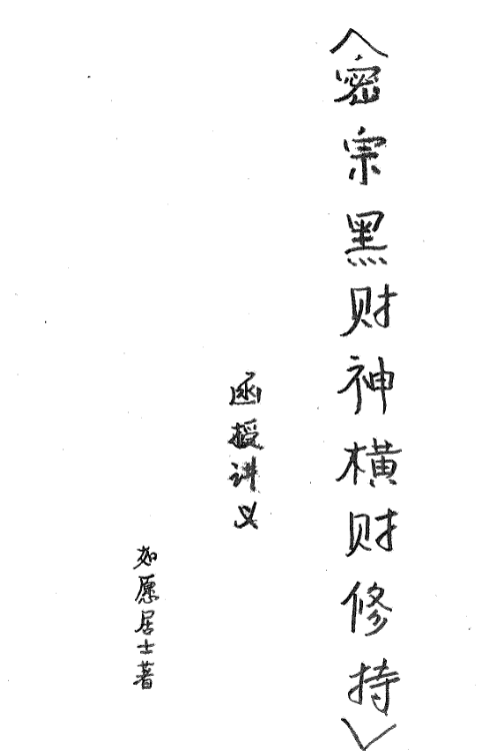 〈密宗黑财神横财修持〉
函授讲义
如愿居士著